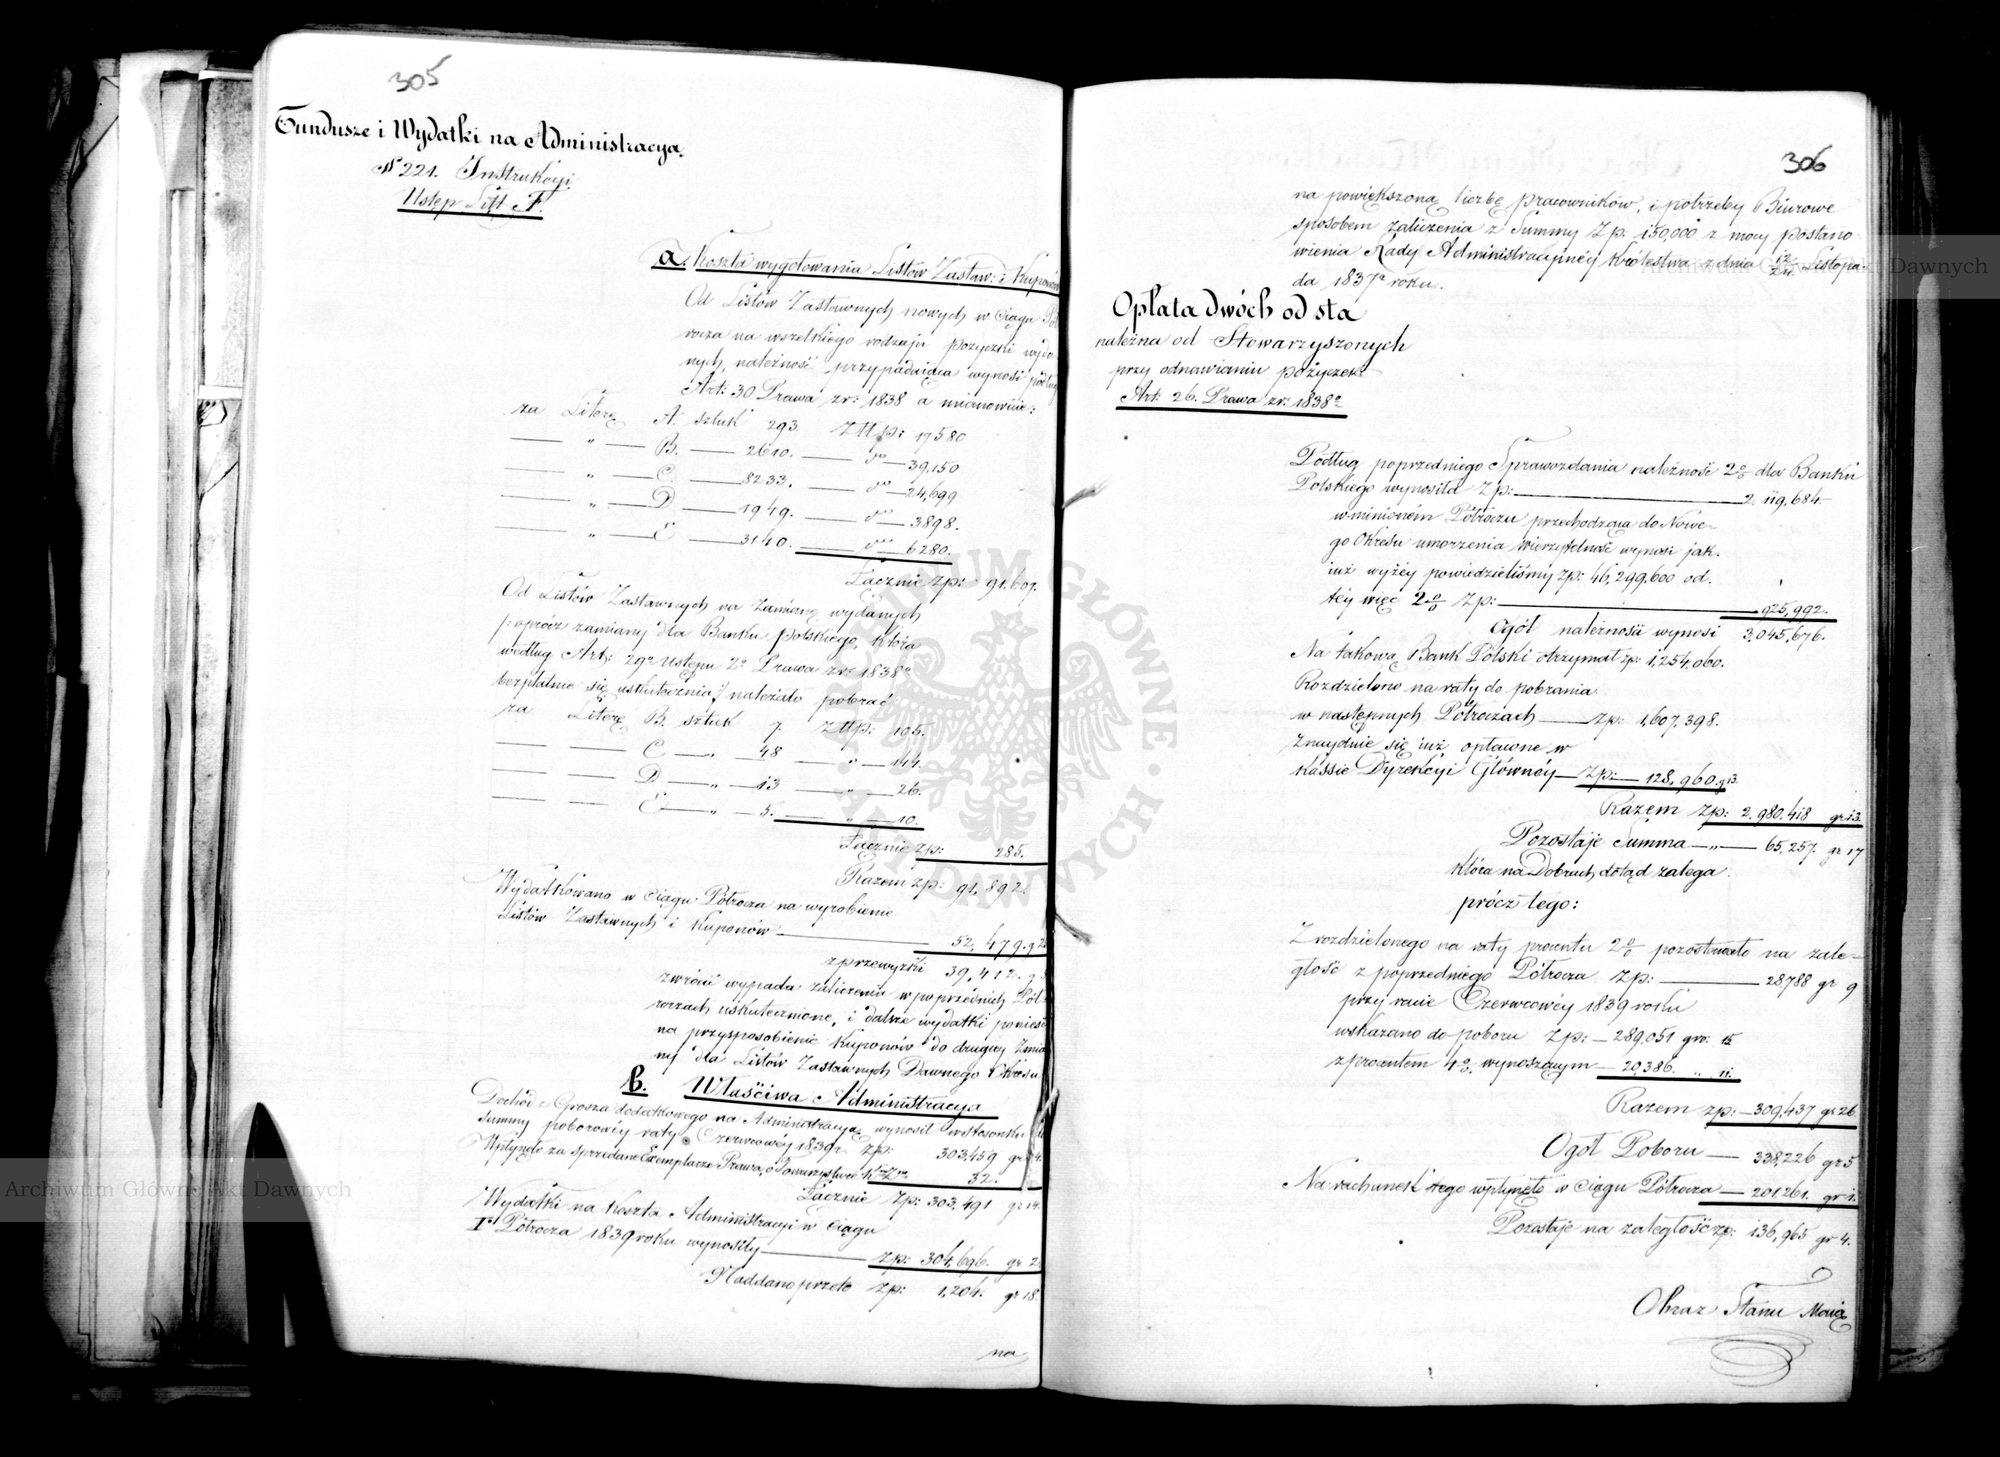 305
Fundusze i Wydatki na Administracyą.
§ 221. Instrukcyi
Ustęp Litt. F.
a. Koszta wygotowania Listów Zastaw: i Kuponów
Od Listów Zastawnych nowych w ciągu Pół
rocza na wszelkiego rodzaju pożyczki wyda
nych, należność przypadająca wynosi podług
Art: 30 Prawa z r: 1838 a mianowicie:
za Literę A. sztuk 293. Złłp: 17580
— " — B. — 2610. — do — 39,150
— " — C. — 8233. — do — 24,699
— " — D. — 1949. — do — 3898.
— " — E. — 3140. — do — 6280.
Łącznie zp: 91.607.
Od Listów Zastawnych na zamianę wydanych
/: oprócz zamiany dla Banku Polskiego, która
według Art: 29go Ustępu 2o Prawa z r: 1838o
bezpłatnie się uskutecznia :/ należało pobrać
za Literę B. sztuk 7. Złłp: 105.
— — C — " — 48 — " — 144.
— — D — " — 13 — " — 26.
— — E — " — 5. — " — 10.
Łącznie zp: 285.
Razem zp: 91,892.
Wydatkowano w ciągu Półrocza na wyrobienie
Listów Zastawnych i Kuponów — 52,479. g
z przewyżki 39,412. g
zwrócić wypada zaliczenia w poprzednich Pół
roczach uskutecznione, i dalsze wydatki ponieść
na przysposobienie Kuponów do drugiey zmia
ny dla Listów Zastawnych Dawnego Okresu
b. Właściwa Administracya
Dochód z Grosza dodatkowego na Administracyą wynosił w stosunku
Summy poborowéy raty Czerwcowéy 1839 r. zp: 303,459 gr 14.
Wpłynęło za sprzedane Exemplarze Prawa o Towarzystwie 32.
Łącznie zp: 303,491 gr 14.
Wydatki na koszta Administracyi w ciągu
Igo Półrocza 1839 roku wynosiły — zp: 304,696. gr 2.
Naddano przeto zp: 1,204. gr 18.
na
306
na powiększoną liczbę pracowników, i potrzeby Biurowe
sposobem zaliczenia z Summy Zp: 150,000 z mocy postano
wienia Rady Administracyjnéy Królestwa z dnia 12/24 Listopa
da 1837o roku.
Opłata dwóch od sta
należna od Stowarzyszonych
przy odnawianiu pożyczek
Art: 26. Prawa z r: 1838o
Podług poprzedniego Sprawozdania należność 2% dla Banku
Polskiego wynosiła Zp: — 2.119,684
w minioném Półroczu przechodząca do Nowe-
go Okresu umorzenia wierzytelność wynosi jak.
już wyżéy powiedzieliśmy zp: 46,299.600 od.
téy więc 2% Zp: — 925,992.
Ogół należności wynosi 3,045,676.
Na takową Bank Polski otrzymał zp: 1,254,060.
Rozdzielono na raty do pobrania
w następnych Półroczach — zp: 1,607,398.
Znayduie się już opłacone w
kassie Dyrekcyi Główney — zp: — 128,960. g 13.
Razem Zp: 2.980.418 gr 13.
Pozostaje Summa — " — 65,257. gr 17
która na Dobrach dotąd zalega.
prócz tego:
Z rozdzielonego na raty procentu 2% pozostawało na zale-
głość z poprzedniego Półrocza zp: — 28,788 gr 9
przy racie Czerwcowéy 1839 roku
wskazano do poboru Zp: — 289,051 gro: 15
z procentem 4% wynoszącym — 20386. " 11.
Razem zp: — 309,437 gr 26
Ogół Poboru — 338,226 gr 5
Na rachunek tego wpłynęło w ciągu Półrocza — 201,261. gr 1.
Pozostaje na zaległość zp: 136,965 gr 4.
Obraz Stanu
Archiwum Główne Akt Dawnych
Archiwum Główne Akt Dawnych
ARCHIWUM GŁÓWNE AKT DAWNYCH